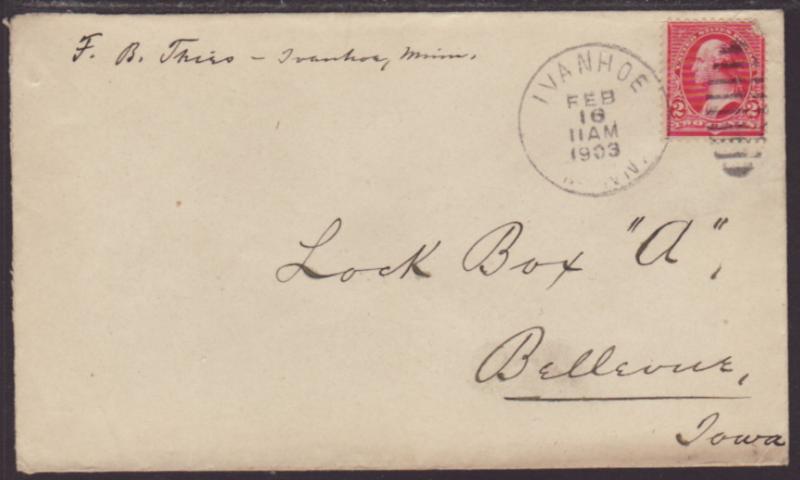 F. B. Thies - Ivanhoe, Minn.
IVANHOE
FEB
16
11AM
1903
MINN.
2 2
TWO CENTS
Lock Box "A",
Bellevue,
Iowa